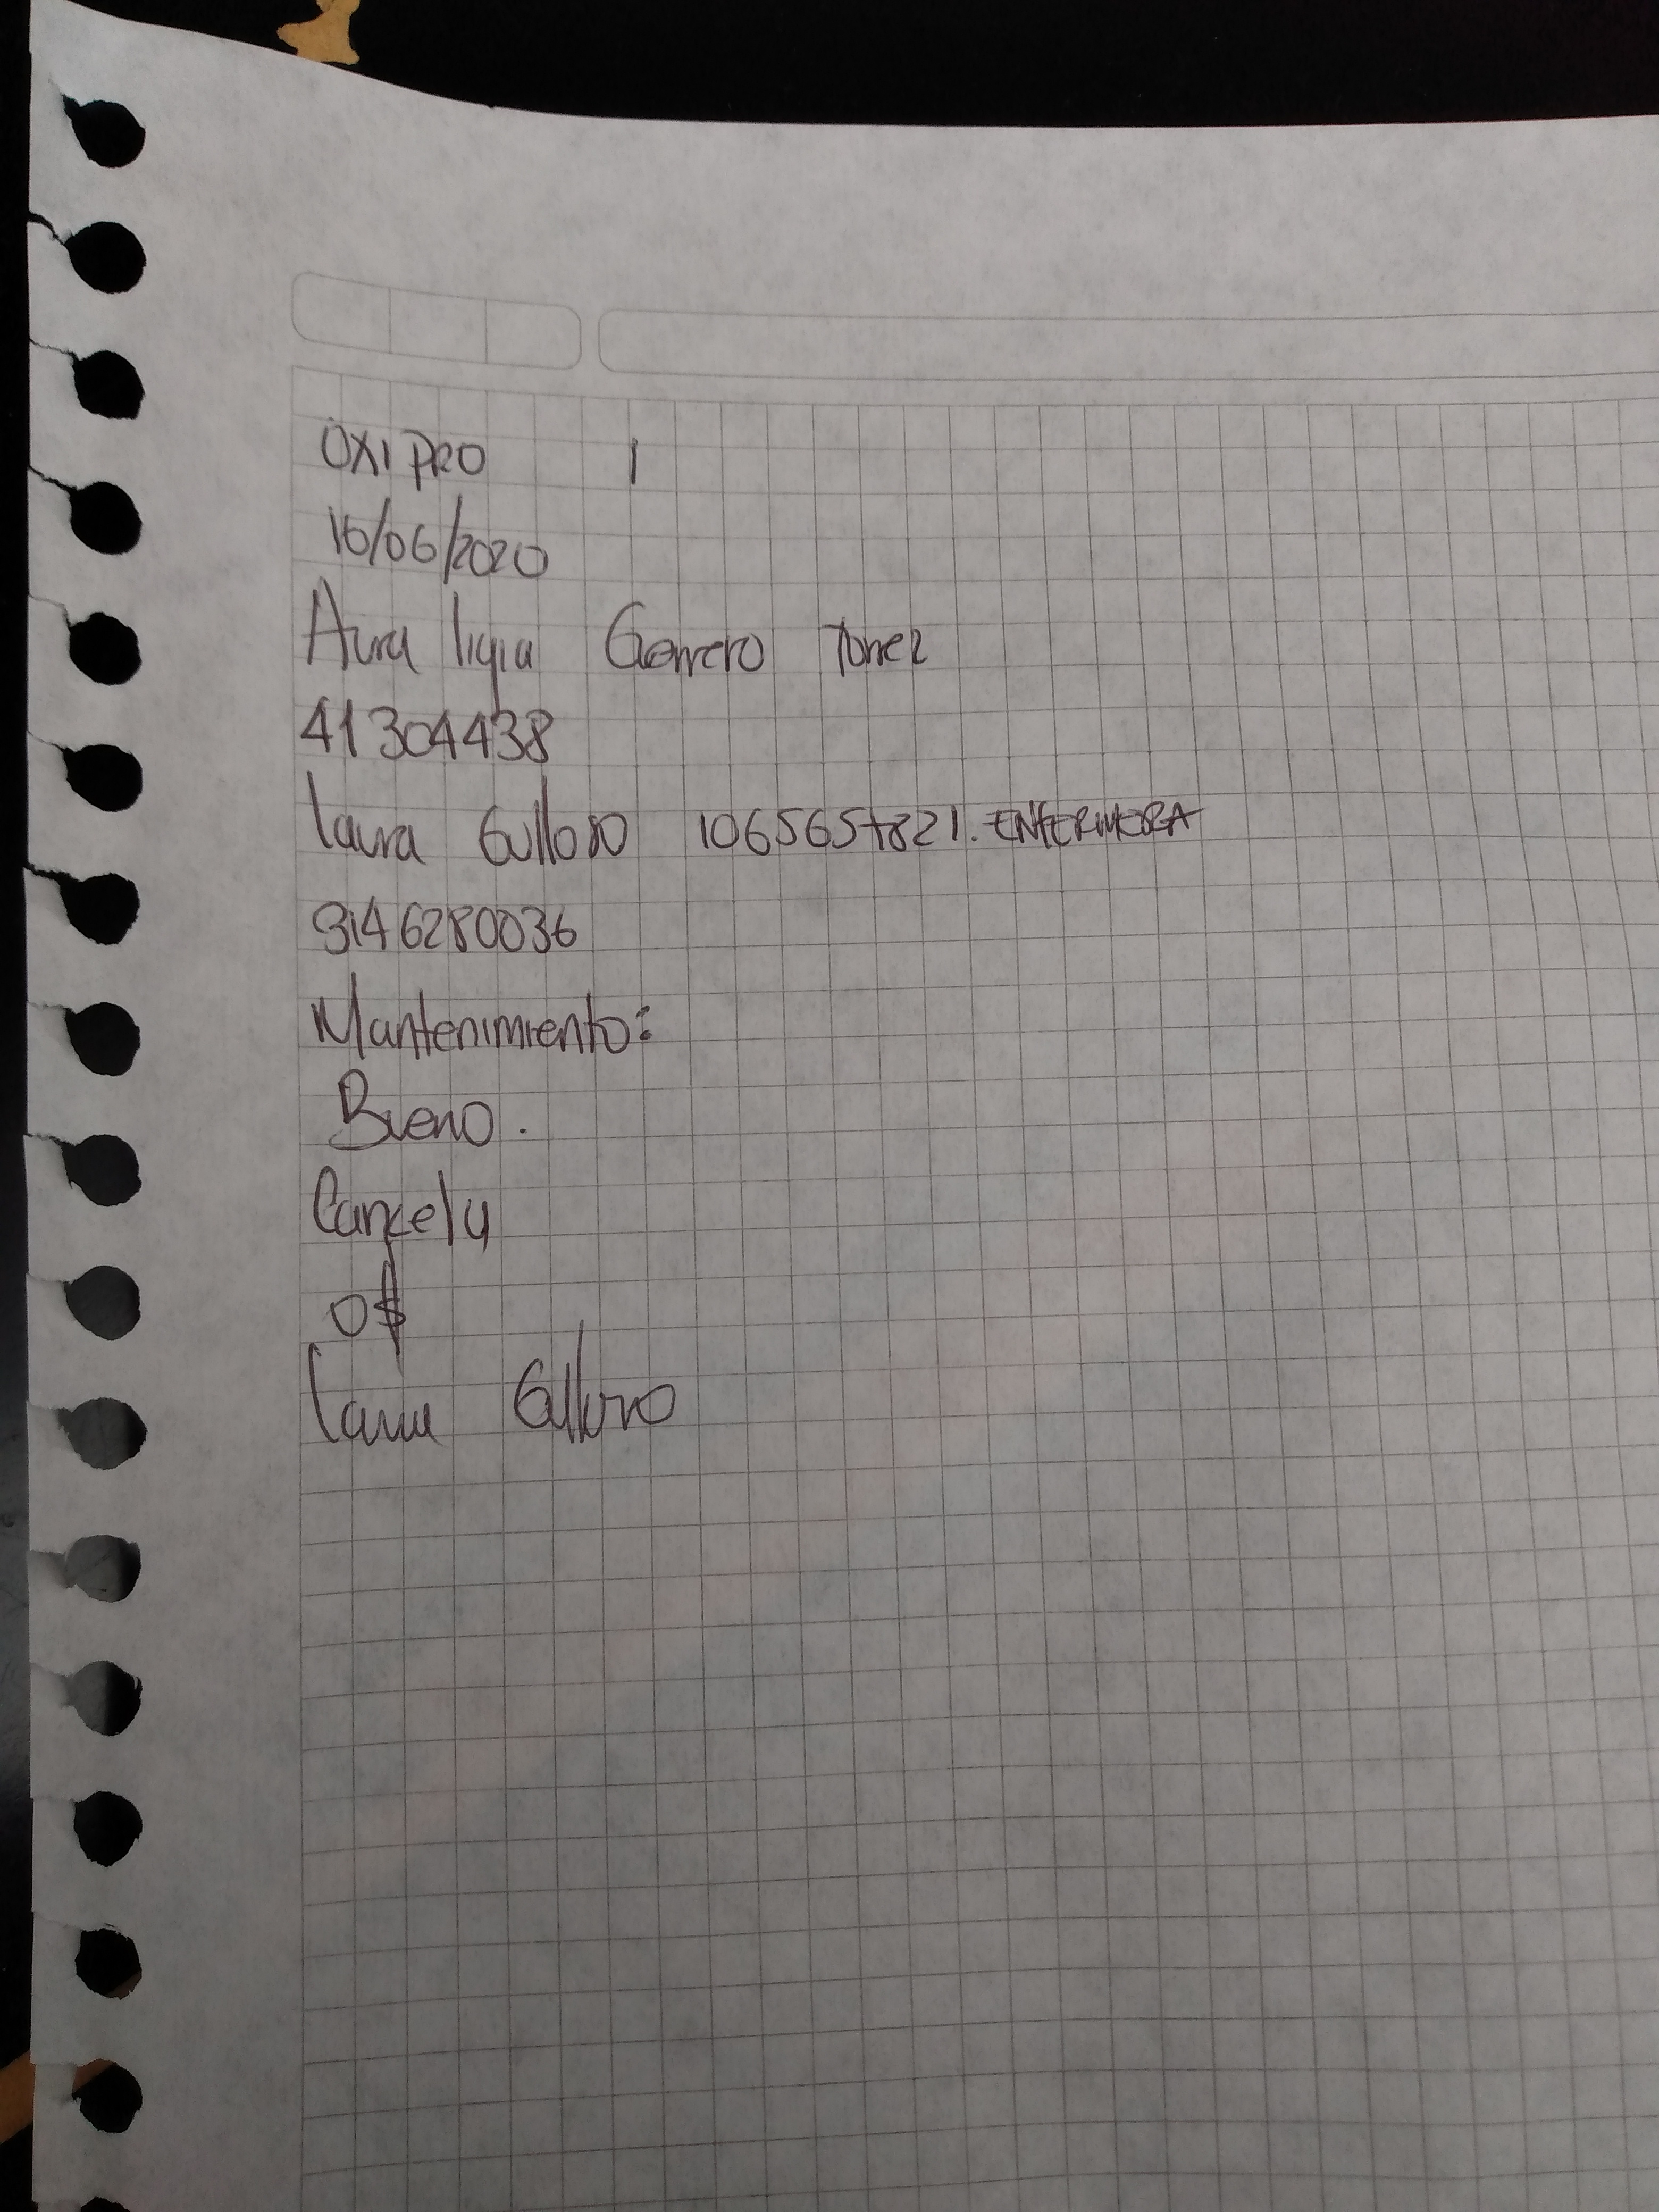 OXI PRO 1
16/06/2020
Aura ligia Gerrero
41304438
laura Gulloso 1065657821. ENFERMERA
3146280036
Mantenimiento:
Bueno.
Cancela
0$
laura Gulloso